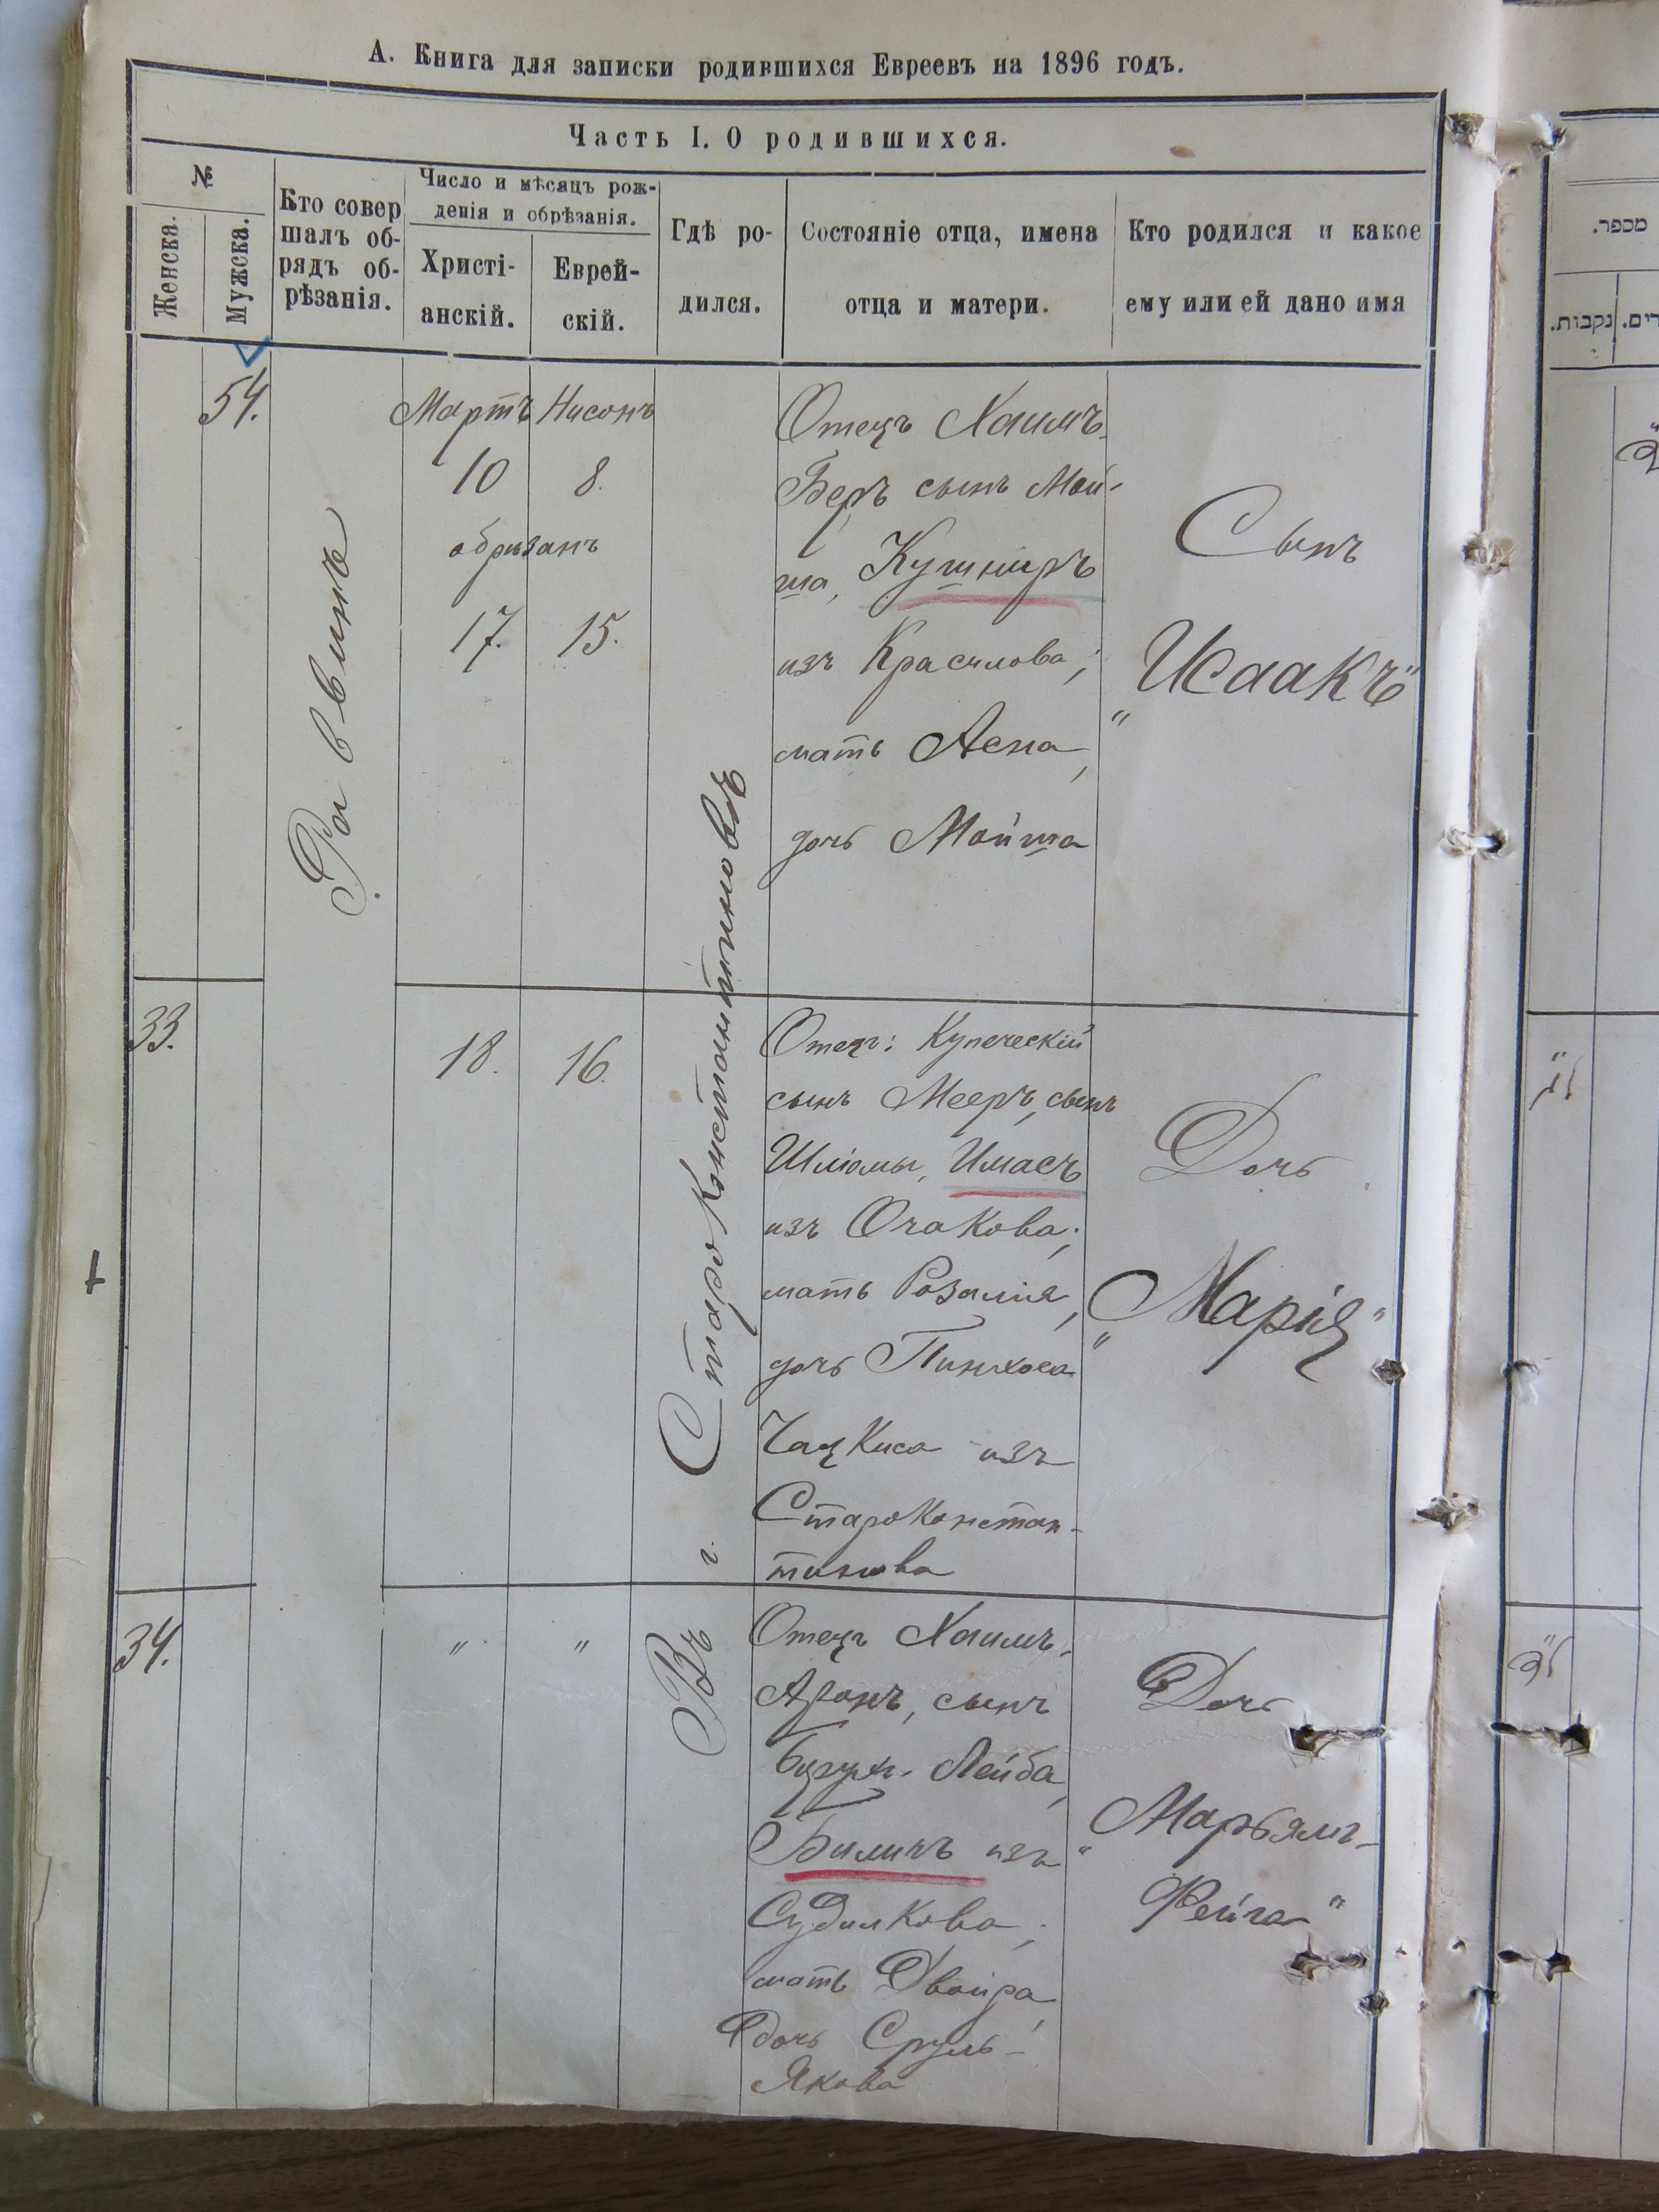 А. Книга для записки родившихся Евреевъ на 1896 годъ.
Часть I. О родившихся.
№
Женска.
Мужска.
Кто совер
шалъ об-
рядъ об-
рѣзанія.
Число и мѣсяцъ рож-
денія и обрѣзанія.
Христі-
анскій.
Еврей-
скій.
Гдѣ ро-
дился.
Состояніе отца, имена
отца и матери.
Кто родился и какое
ему или ей дано имя
54.
Раввинъ
Мартъ
10
обрѣзанъ
17.
Нисонъ
8.
15.
Въ г. Староконстантиновѣ
Отецъ Хаимъ-
Беръ сынъ Мой-
ша, Кушниръ
изъ Красилова;
мать Асна,
дочь Мойша
Сынъ
„Исаакъ"
33.
18.
16.
Отецъ: Купеческій
сынъ Мееръ, сынъ
Шліомы, Имасъ
изъ Очакова;
мать Розалія,
дочь Пинхоса
Чацкиса изъ
Староконстан-
тинова
Дочь
„Марія"
34.
"
"
Отецъ Хаимъ-
Аронъ, сынъ
Лейба,
Билинъ изъ
Судилкова;
мать Двойра,
дочь Сруль-
Якова
Дочь
„Марьямъ-
Фейга"
מספר.
נקבות.